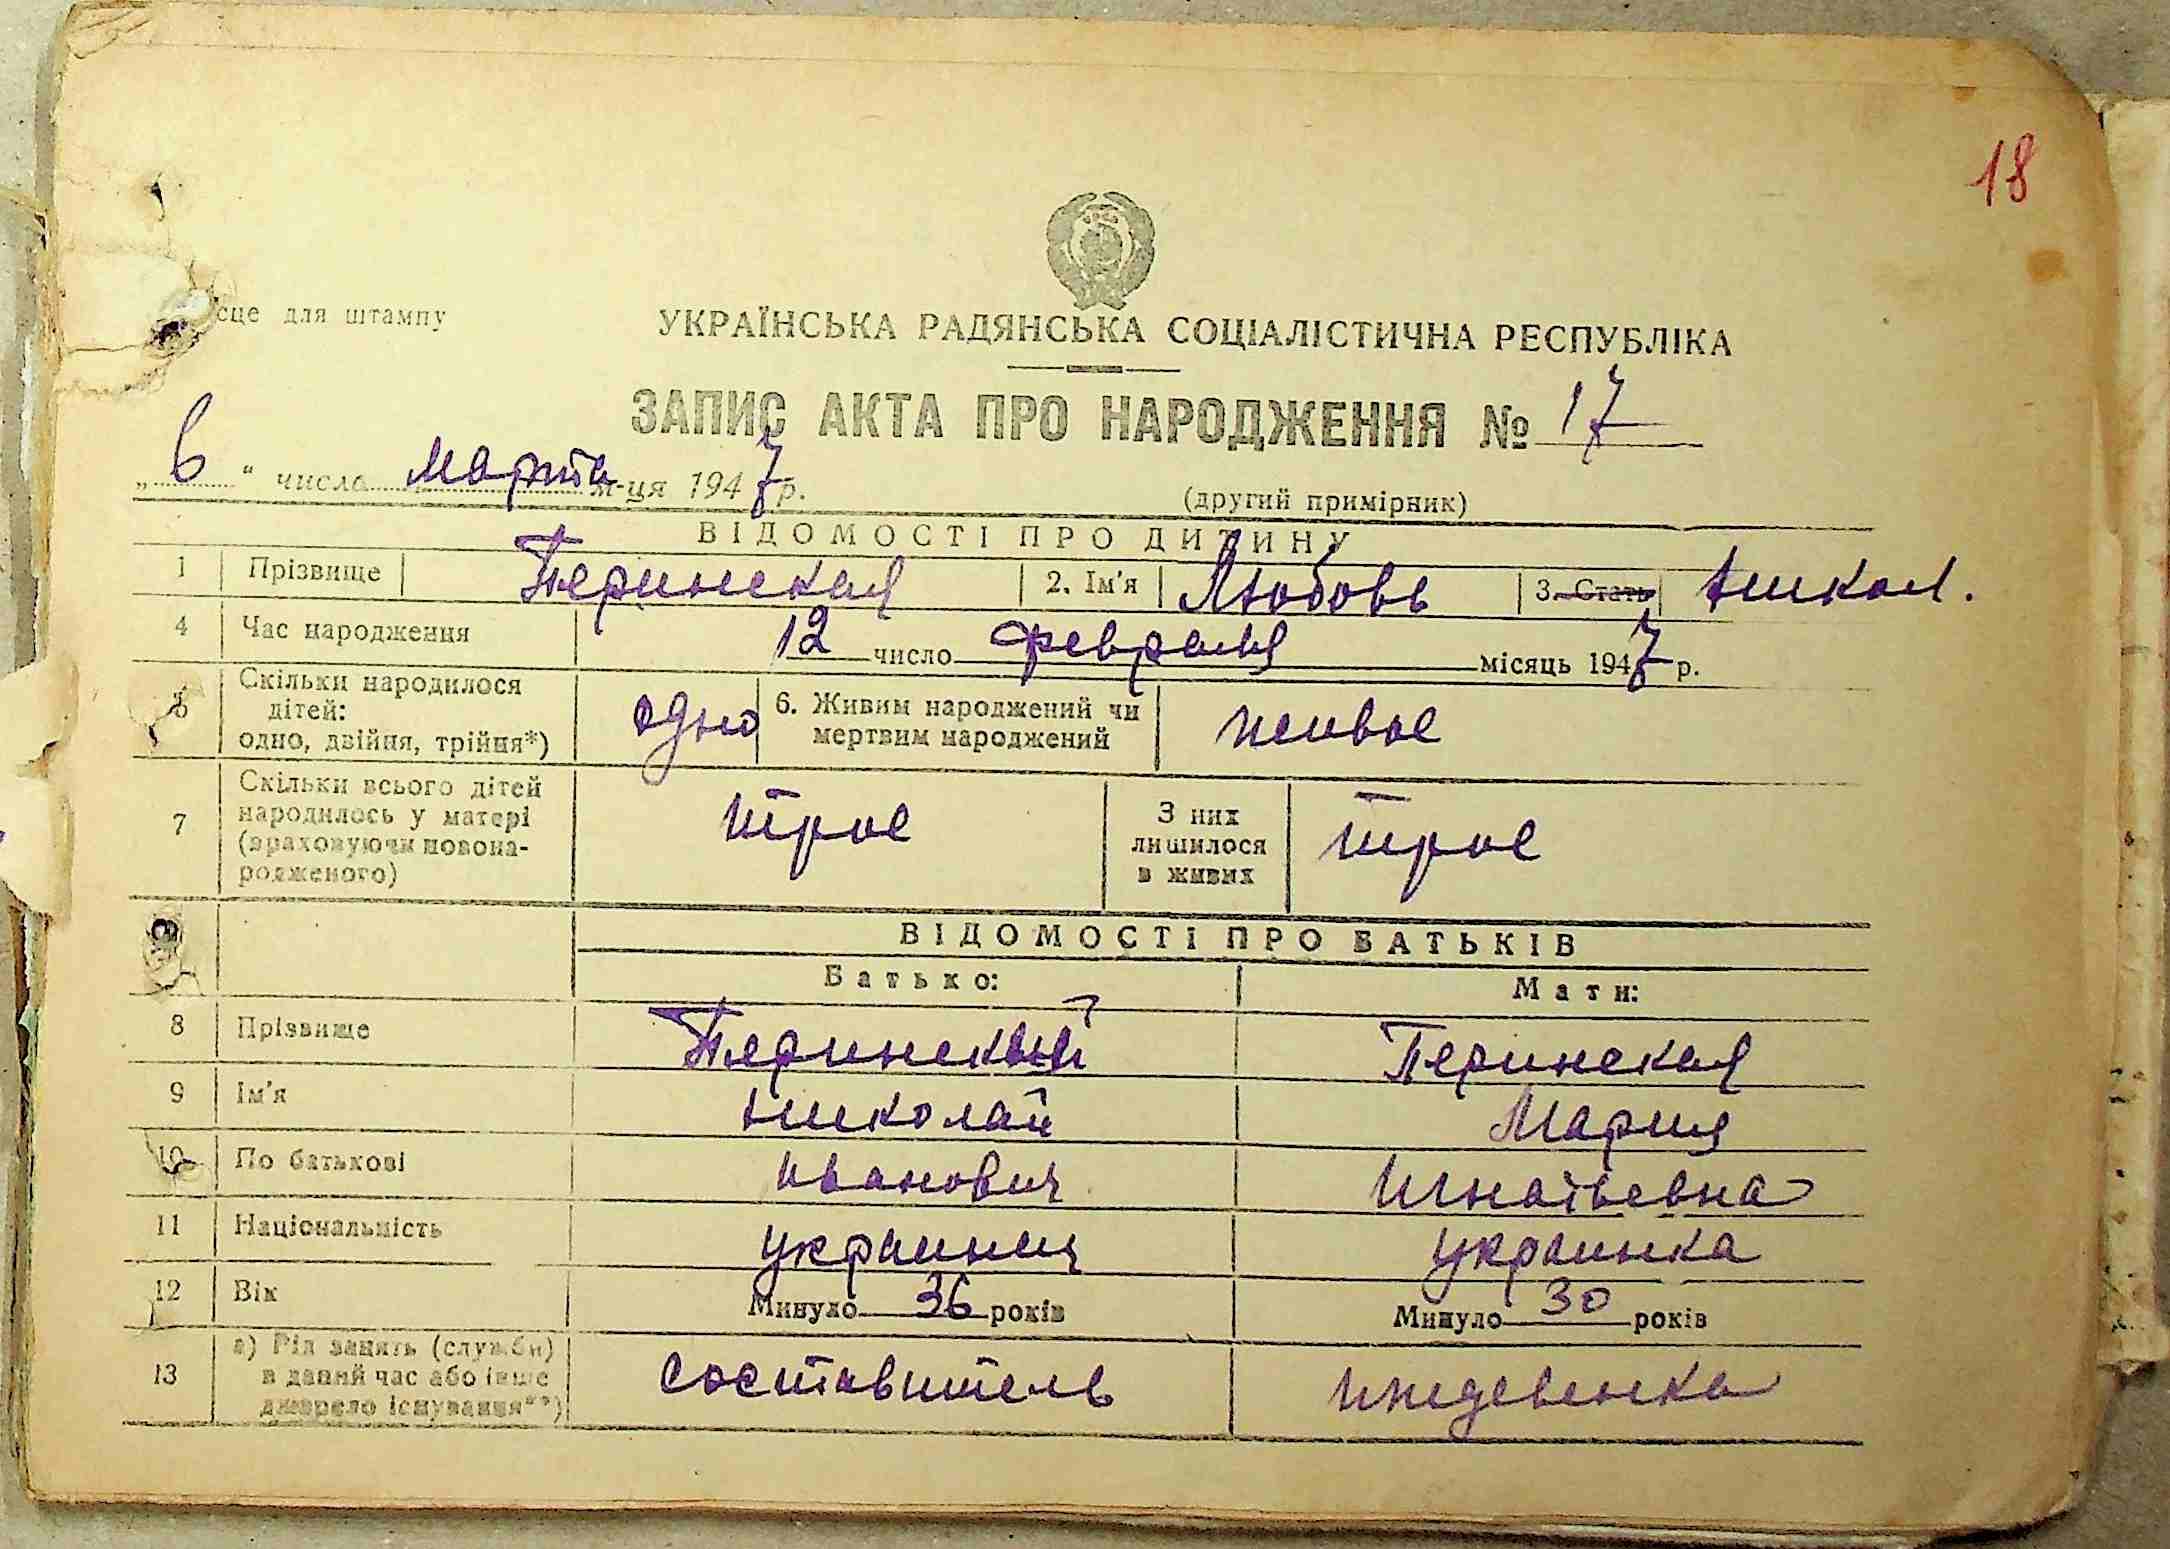 18
сце для штампу
УКРАЇНСЬКА РАДЯНСЬКА СОЦІАЛІСТИЧНА РЕСПУБЛІКА
ЗАПИС АКТА ПРО НАРОДЖЕННЯ № 17
„6“ число марта м-ця 1947 р.
(другий примірник)
ВІДОМОСТІ ПРО ДИТИНУ
1 Прізвище Перинская 2. Ім'я Любовь 3. Стать Никол.
4 Час народження 12 число февраля місяць 1947 р.
5 Скільки народилося дітей: одно, двійня, трійня*) одно 6. Живим народжений чи мертвим народжений живое
7 Скільки всього дітей народилось у матері (враховуючи новонародженого) трое З них лишилося в живих трое
ВІДОМОСТІ ПРО БАТЬКІВ
Батько: Мати:
8 Прізвище Перинский Перинская
9 Ім'я Николай Мария
10 По батькові Иванович Игнатьевна
11 Національність украинец украинка
12 Вік Минуло 36 років Минуло 30 років
13 а) Рід занять (служби) в даний час або інше джерело існування**) составитель иждевенка